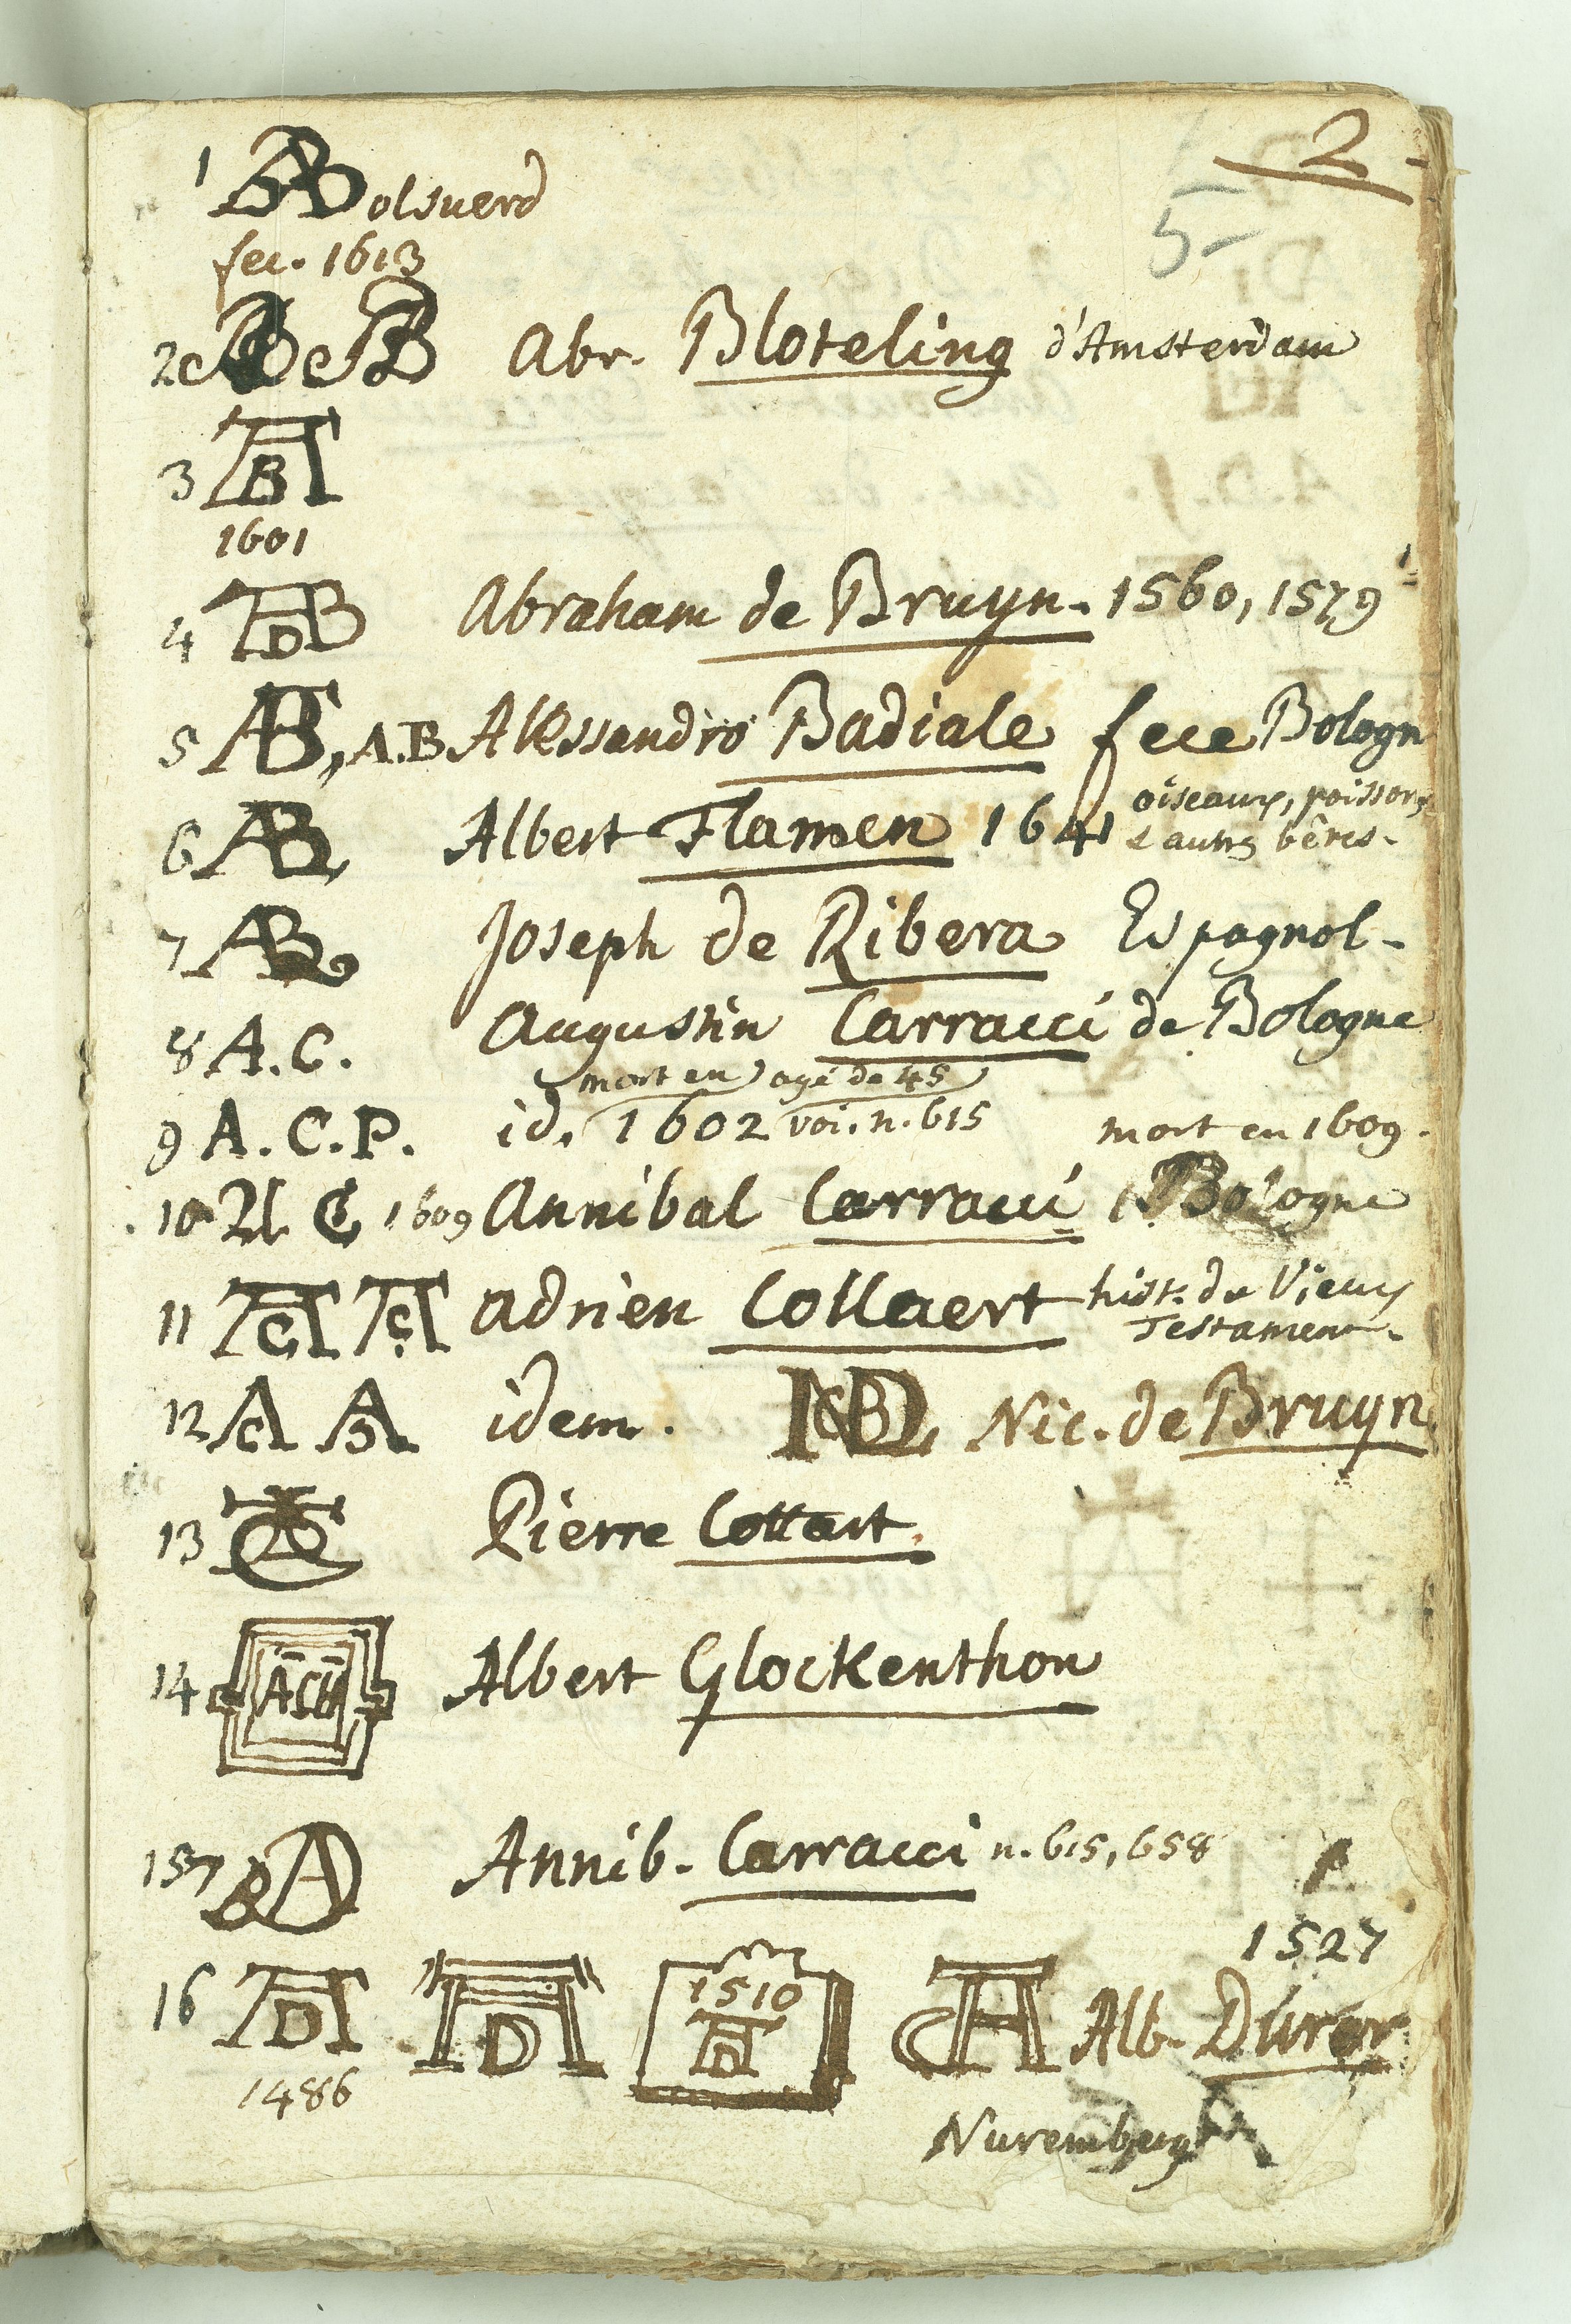 2
5-
1 ABolsuerd
fec. 1613
2 AB AB Abr. Bloteling d'Amsterdam
3 AB
1601
4 ADB Abraham de Bruyn. 1560, 1579
5 AB, A.B Alessandro Badiale fece Bologn
6 AB, Albert Flamen 1641 oiseaux, poissons
& autrs bêtes.
7 AB Joseph de Ribera Espagnol-
8 A.C. Augustin Carracci de Bologne
mort en agé de 45
9 A.C.P. id. 1602 voi. n. 615 mort en 1609.
10 A C 1609 Annibal Carracci Bologne
11 AC AC Adrien Collaert hist. du Vieux
Testament.
12 AC A idem. NDB Nic. de Bruyn
13 Pierre Collart.
14 Albert Glockenthon
15 A Annib. Carracci n. 615, 658
1527
16 AD AD 1510 AD A Alb. Dürer
1486
Nuremberg